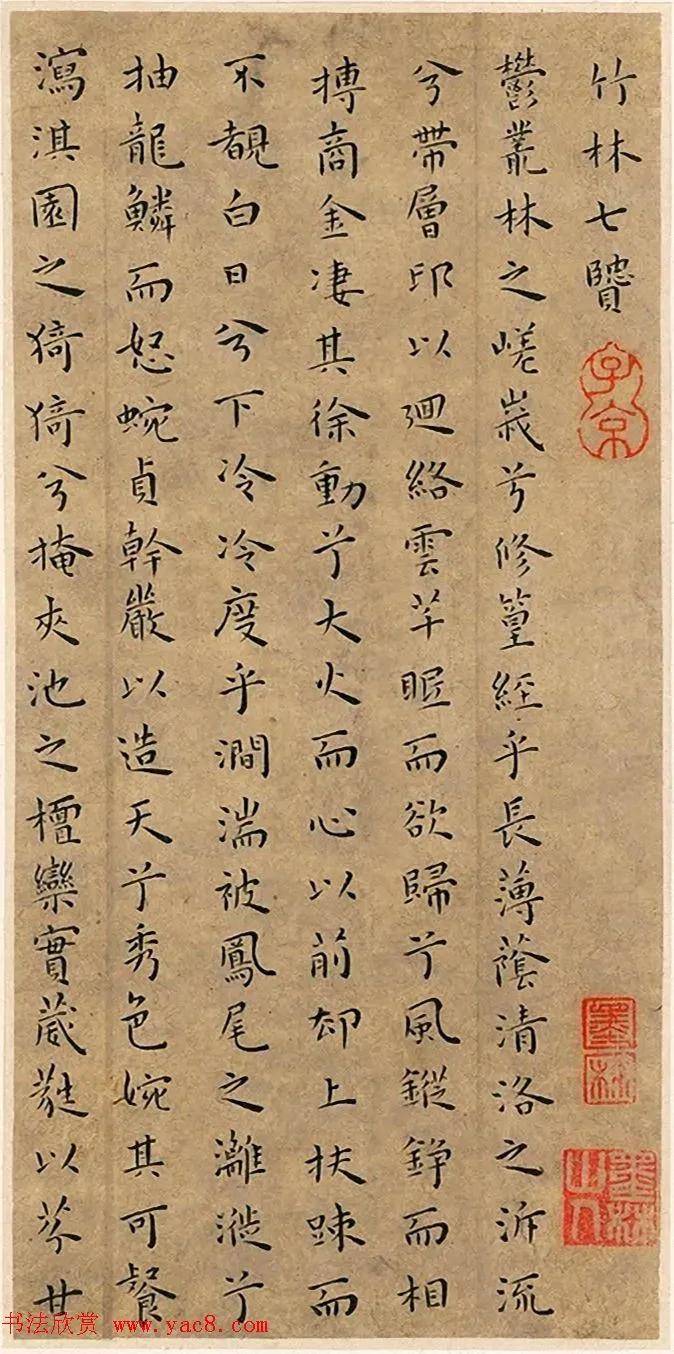 竹林七贒
鬱叢林之嵯峩兮修篁經乎長薄蔭清洛之泝流
兮帶層邙以廻絡雲芊眠而欲歸兮風鏦錚而相
摶商金凄其徐動兮大火而心以前却上扶踈而
不覩白日兮下冷冷度乎澗湍被鳳尾之灕漇兮
抽龍鱗而怒蜿貞幹嚴以造天兮秀色婉其可餐
瀉淇園之猗猗兮掩夾池之檀欒實葳蕤以芬甘
子京
墨林
墨林山人
书法欣赏 www.yac8.com